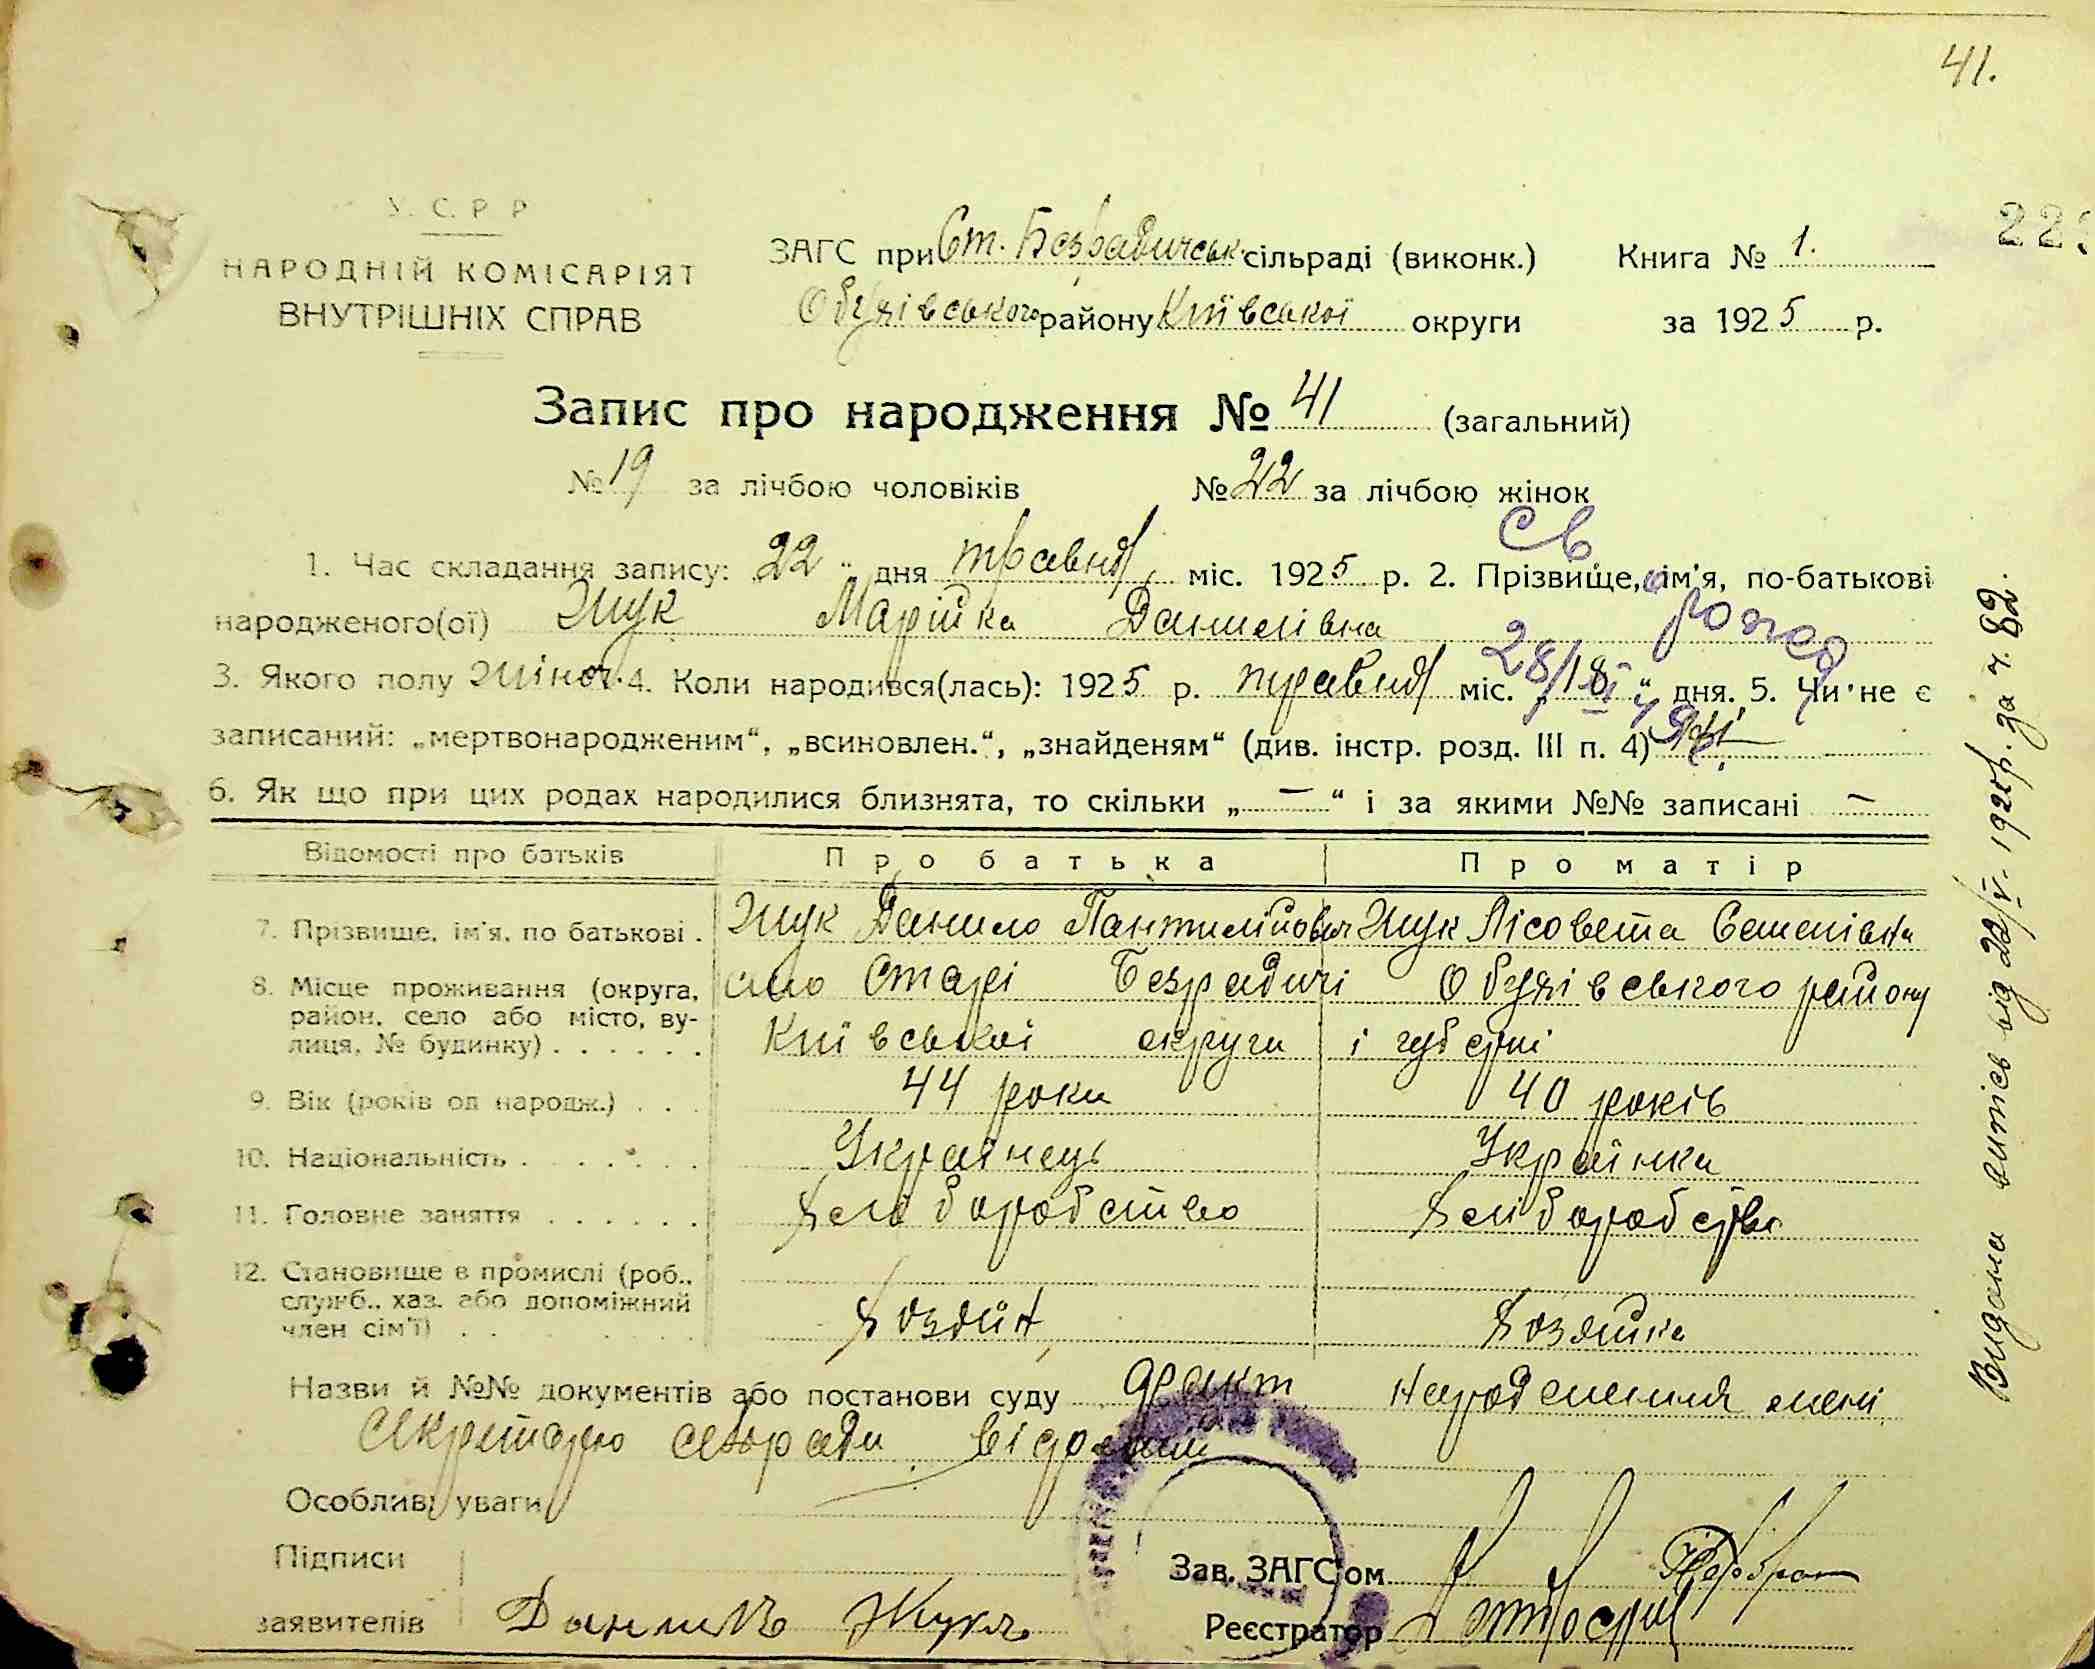 41.
У. С. Р. Р
НАРОДНІЙ КОМІСАРІЯТ
ВНУТРІШНІХ СПРАВ
ЗАГС при Ст. Безрадичськ. сільраді (виконк.) Книга № 1.
Обухівського району Київської округи за 1925 р.
22
Запис про народження № 41 (загальний)
№ 19 за лічбою чоловіків № 22 за лічбою жінок
1. Час складання запису: 22 " дня травня міс. 1925 р. 2. Прізвище, ім'я, по-батькові
народженого(ої) Жук Марійка Данилівна
3. Якого полу жіноч. 4. Коли народився(лась): 1925 р. травня міс. „ 18 " дня. 5. Чи не є
записаний: „мертвонародженим“, „всиновлен.“, „знайденям“ (див. інстр. розд. III п. 4)
6. Як що при цих родах народилися близнята, то скільки „ — “ і за якими №№ записані —
Відомості про батьків Про батька Про матір
7. Прізвище, ім'я, по батькові . Жук Данило Пантилімович Жук Лісовета Семенівна
8. Місце проживання (округа, район, село або місто, вулиця, № будинку) . . . . . . село Старі Безрадичі Обухівського району
Київської округи і губерні
9. Вік (років од народж.) . . . 44 роки 40 років
10. Національність . . . . . . . Українець Українка
11. Головне заняття . . . . . . Хліборобство Хліборобство
12. Становище в промислі (роб., служб., хаз. або допоміжний член сім'ї) . . Хозяїн Хозяйка
Назви й №№ документів або постанови суду факт народження мені
секретарю сельради відомий
Особливі уваги
Підписи
заявителів Данилъ Жукъ
Зав. ЗАГС'ом
Реєстратор
Видана витпісь від 22/V. 1925 р. за ч. 82.